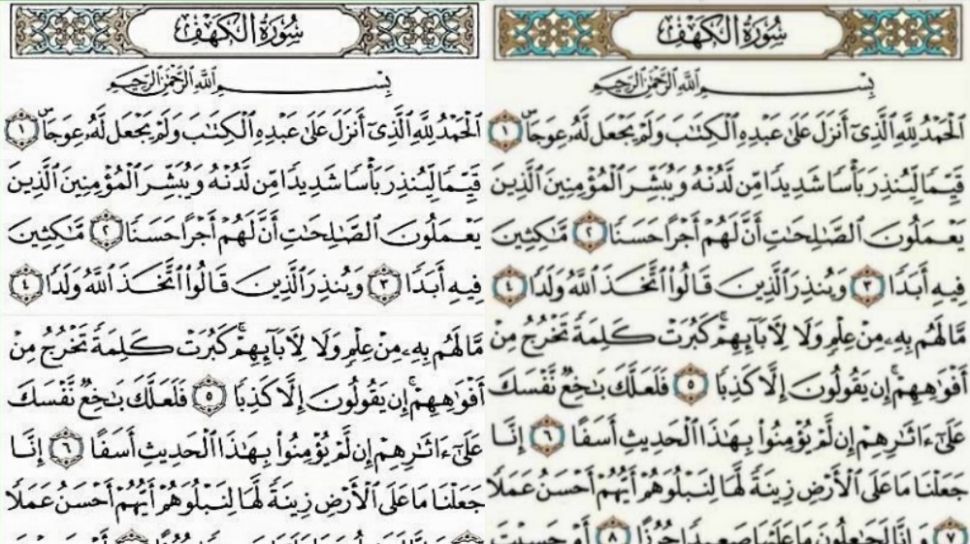 سُورَةُ الْكَهْفِ
بِسْمِ اللَّهِ الرَّحْمَٰنِ الرَّحِيمِ
ٱلْحَمْدُ لِلَّهِ ٱلَّذِىٓ أَنزَلَ عَلَىٰ عَبْدِهِ ٱلْكِتَٰبَ وَلَمْ يَجْعَل لَّهُۥ عِوَجَاۜ ١
قَيِّمًا لِّيُنذِرَ بَأْسًا شَدِيدًا مِّن لَّدُنْهُ وَيُبَشِّرَ ٱلْمُؤْمِنِينَ ٱلَّذِينَ
يَعْمَلُونَ ٱلصَّٰلِحَٰتِ أَنَّ لَهُمْ أَجْرًا حَسَنًا ٢ مَّٰكِثِينَ
فِيهِ أَبَدًا ٣ وَيُنذِرَ ٱلَّذِينَ قَالُوا۟ ٱتَّخَذَ ٱللَّهُ وَلَدًا ٤
مَّا لَهُم بِهِۦ مِنْ عِلْمٍ وَلَا لِءَابَآئِهِمْ ۚ كَبُرَتْ كَلِمَةً تَخْرُجُ مِنْ
أَفْوَٰهِهِمْ ۚ إِن يَقُولُونَ إِلَّا كَذِبًا ٥ فَلَعَلَّكَ بَٰخِعٌ نَّفْسَكَ
عَلَىٰٓ ءَاثَٰرِهِمْ إِن لَّمْ يُؤْمِنُوا۟ بِهَٰذَا ٱلْحَدِيثِ أَسَفًا ٦ إِنَّا
جَعَلْنَا مَا عَلَى ٱلْأَرْضِ زِينَةً لَّهَا لِنَبْلُوَهُمْ أَيُّهُمْ أَحْسَنُ عَمَلًا
٧ وَإِنَّا لَجَٰعِلُونَ مَا عَلَيْهَا صَعِيدًا جُرُزًا ٨ أَمْ حَسِبْتَ
سُورَةُ الْكَهْفِ
بِسْمِ اللَّهِ الرَّحْمَٰنِ الرَّحِيمِ
ٱلْحَمْدُ لِلَّهِ ٱلَّذِىٓ أَنزَلَ عَلَىٰ عَبْدِهِ ٱلْكِتَٰبَ وَلَمْ يَجْعَل لَّهُۥ عِوَجَاۜ ١
قَيِّمًا لِّيُنذِرَ بَأْسًا شَدِيدًا مِّن لَّدُنْهُ وَيُبَشِّرَ ٱلْمُؤْمِنِينَ ٱلَّذِينَ
يَعْمَلُونَ ٱلصَّٰلِحَٰتِ أَنَّ لَهُمْ أَجْرًا حَسَنًا ٢ مَّٰكِثِينَ
فِيهِ أَبَدًا ٣ وَيُنذِرَ ٱلَّذِينَ قَالُوا۟ ٱتَّخَذَ ٱللَّهُ وَلَدًا ٤
مَّا لَهُم بِهِۦ مِنْ عِلْمٍ وَلَا لِءَابَآئِهِمْ ۚ كَبُرَتْ كَلِمَةً تَخْرُجُ مِنْ
أَفْوَٰهِهِمْ ۚ إِن يَقُولُونَ إِلَّا كَذِبًا ٥ فَلَعَلَّكَ بَٰخِعٌ نَّفْسَكَ
عَلَىٰٓ ءَاثَٰرِهِمْ إِن لَّمْ يُؤْمِنُوا۟ بِهَٰذَا ٱلْحَدِيثِ أَسَفًا ٦ إِنَّا
جَعَلْنَا مَا عَلَى ٱلْأَرْضِ زِينَةً لَّهَا لِنَبْلُوَهُمْ أَيُّهُمْ أَحْسَنُ عَمَلًا